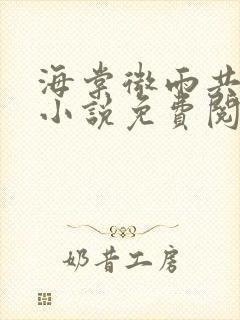 海棠微雨共
小說免費閱
奶昔工房